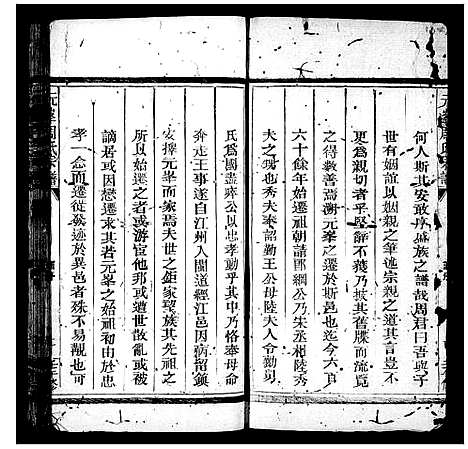 何人斯其安敢弁巍族之譜哉周君曰吾與子
世有姻誼以姻親之筆述宗親之道其言豈不
更爲親切者乎堅辭不獲乃披其舊牒而流覽
之得數善焉溯元峯之遷於斯邑也迄今六百
六十餘年始遷祖朝請郎綱公乃朱丞相陸秀
夫之甥也秀夫奉詔勤王公母陸夫人令勤舅
氏爲國盡瘁公以忠孝勤乎其中乃恪奉母命
奔走王事遂自江州入閩道經江邑因病搢鎭
安擇元峯而家焉夫世之鉅家望族其先祖之
所以始遷之者或游宦他邦或遭世散亂或被
謫居或因戀遷求其若元峯之始祖初由於忠
孝一念而遷徙發迹於異邑者殊不易覯也可